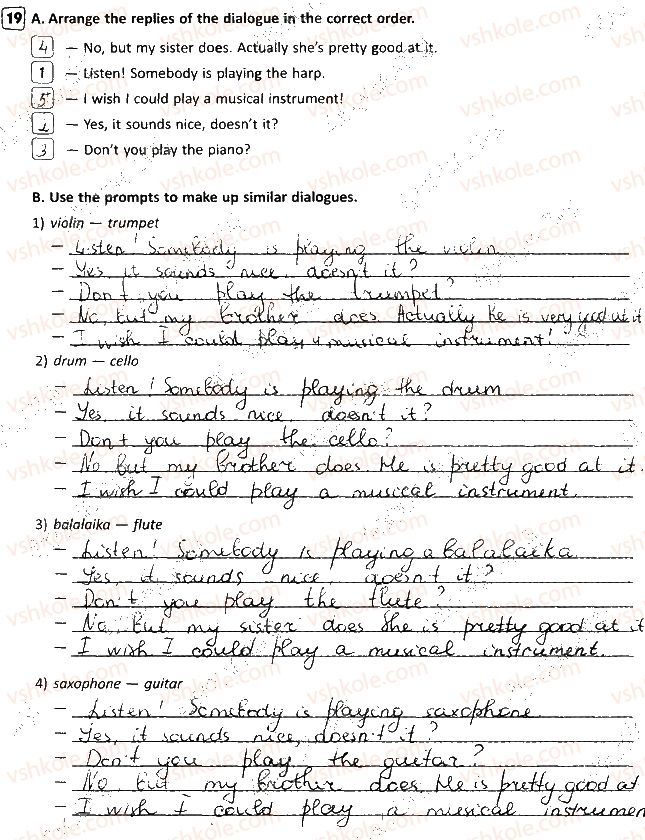 19 A. Arrange the replies of the dialogue in the correct order.
4 — No, but my sister does. Actually she's pretty good at it.
1 — Listen! Somebody is playing the harp.
5 — I wish I could play a musical instrument!
2 — Yes, it sounds nice, doesn't it?
3 — Don't you play the piano?
B. Use the prompts to make up similar dialogues.
1) violin — trumpet
— Listen! Somebody is playing the violin
— Yes, it sounds nice, doesn't it?
— Don't you play the trumpet?
— No, but my brother does. Actually he is very good at it
— I wish I could play a musical instrument!
2) drum — cello
— Listen! Somebody is playing the drum
— Yes, it sounds nice, doesn't it?
— Don't you play the cello?
— No but my brother does. He is pretty good at it.
— I wish I could play a musical instrument.
3) balalaika — flute
— Listen! Somebody is playing a balalaika
— Yes, it sounds nice, doesn't it?
— Don't you play the flute?
— No, but my sister does She is pretty good at it
— I wish I could play a musical instrument.
4) saxophone — guitar
— Listen! Somebody is playing saxophone
— Yes, it sounds nice, doesn't it?
— Don't you play the guitar?
— No, but my brother does. He is pretty good at
— I wish I could play a musical instrumen
vshkole.com